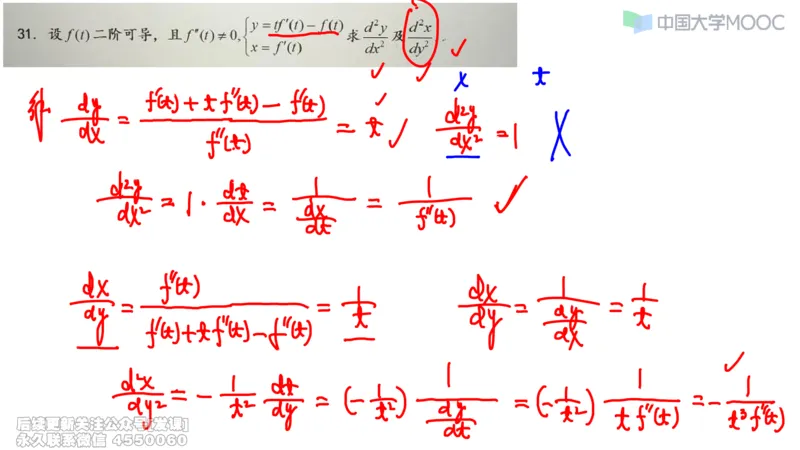 中国大学MOOC
31. 设 f(t) 二阶可导，且 f″(t) ≠ 0, { y = tf′(t) − f(t) x = f′(t) 求 d²y/dx² 及 d²x/dy².
x t
解 dy/dx = (f′(t) + t f″(t) − f′(t)) / f″(t) = t ✓ d²y/dx² = 1 ╳
d²y/dx² = 1 · dt/dx = 1/(dx/dt) = 1/f″(t) ✓
dx/dy = f″(t) / (f′(t) + t f″(t) − f″(t)) = 1/t dx/dy = 1/(dy/dx) = 1/t
d²x/dy² = − 1/t² dt/dy = (− 1/t²) 1/(dy/dt) = (− 1/t²) 1/(t f″(t)) = − 1/(t³ f″(t))
后续更新关注公众号[发课]
永久联系微信 4550060